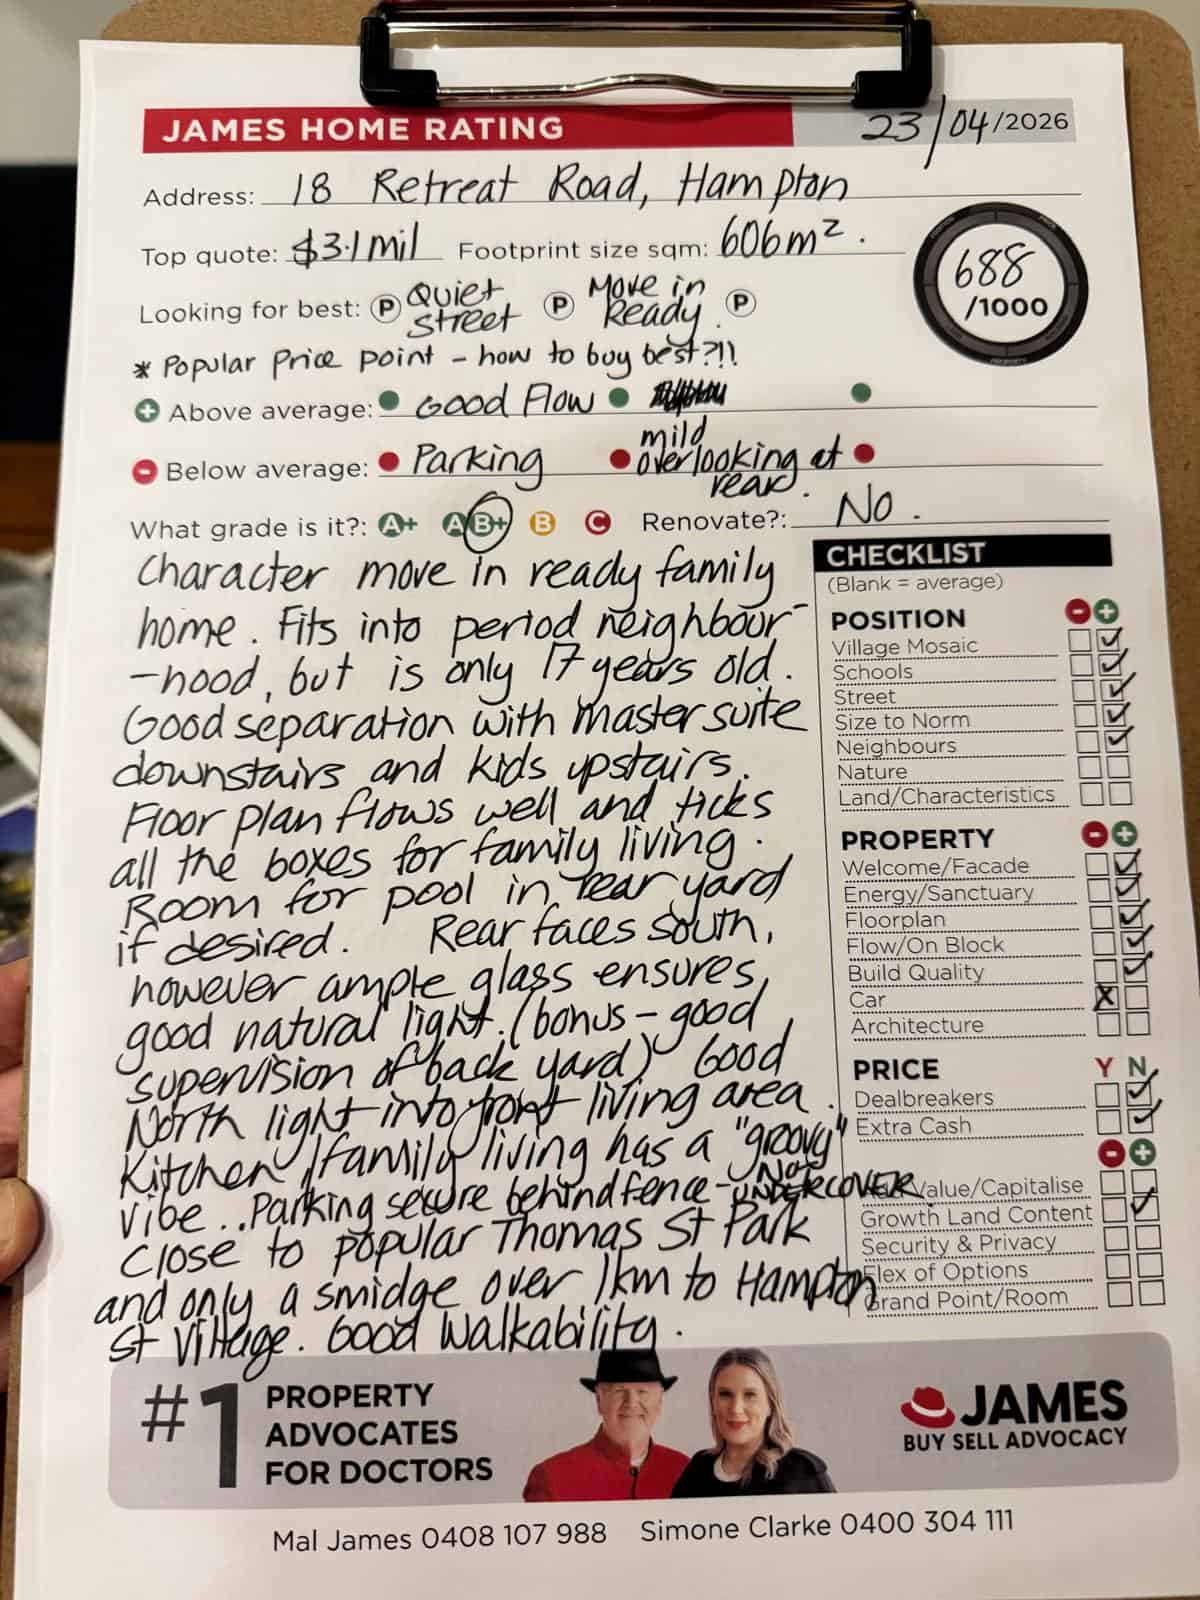 JAMES HOME RATING 23/04/2026
Address: 18 Retreat Road, Hampton
Top quote: $3.1mil Footprint size sqm: 606m².
688
/1000
Looking for best: P Quiet Street P Move in Ready. P
* Popular Price point - how to buy best?!!
+ Above average: Good Flow
- Below average: Parking mild overlooking at rear.
What grade is it?: A+ A B+ B C Renovate?: No.
Character move in ready family
home. Fits into period neighbour-
-hood, but is only 17 years old.
Good separation with master suite
downstairs and kids upstairs.
Floor plan flows well and ticks
all the boxes for family living.
Room for pool in rear yard
if desired. Rear faces south,
however ample glass ensures
good natural light. (bonus - good
supervision of back yard) Good
North light into front living area.
Kitchen/family living has a "groovy"
vibe.. Parking secure behind fence - NOT UNDERCOVER
Close to popular Thomas St Park
and only a smidge over 1km to Hampton
St Village. Good walkability.
CHECKLIST
(Blank = average)
POSITION - +
Village Mosaic ✓
Schools ✓
Street ✓
Size to Norm ✓
Neighbours ✓
Nature
Land/Characteristics
PROPERTY - +
Welcome/Facade ✓
Energy/Sanctuary ✓
Floorplan ✓
Flow/On Block ✓
Build Quality ✓
Car X
Architecture
PRICE Y N
Dealbreakers ✓
Extra Cash ✓
- +
Value/Capitalise
Growth Land Content ✓
Security & Privacy
Flex of Options
Grand Point/Room
#1 PROPERTY
ADVOCATES
FOR DOCTORS
JAMES
BUY SELL ADVOCACY
Mal James 0408 107 988 Simone Clarke 0400 304 111